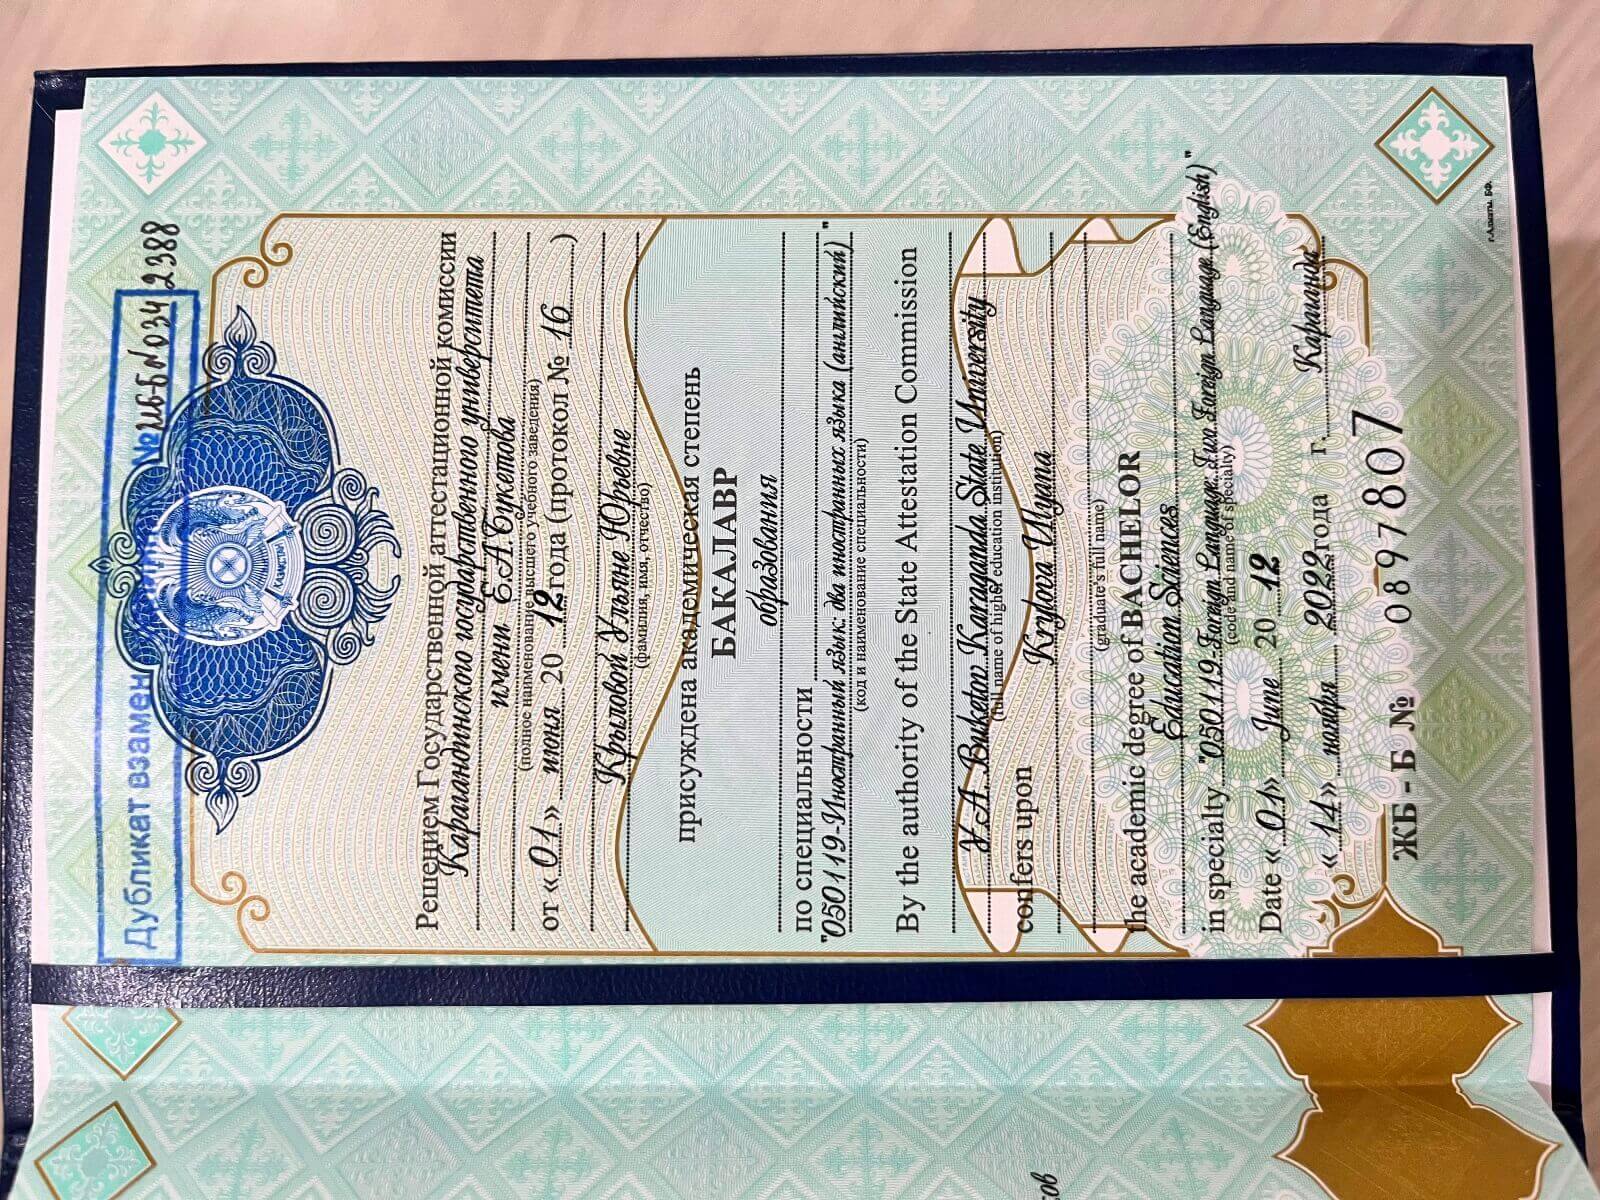 Дубликат взамен
№ ЖБ-Б №0342388
ҚАЗАҚСТАН
Решением Государственной аттестационной комиссии
Карагандинского государственного университета
имени Е.А.Букетова
(полное наименование высшего учебного заведения)
от «01» июня 2012 года (протокол № 16 )
Крыловой Ульяне Юрьевне
(фамилия, имя, отчество)
присуждена академическая степень
БАКАЛАВР
образования
по специальности
"050119-Иностранный язык: два иностранных языка (английский)"
(код и наименование специальности)
By the authority of the State Attestation Commission
Y.A. Buketov Karaganda State University
(full name of higher education institution)
confers upon
Krylova Ulyana
(graduate's full name)
the academic degree of BACHELOR
Education Sciences
in specialty "050119-Foreign Language: Two Foreign Language (English)"
(code and name of specialty)
Date «01» June 2012
«14» ноября 2022 года г. Караганда
ЖБ-Б № 0897807
г.Алматы. БФ.